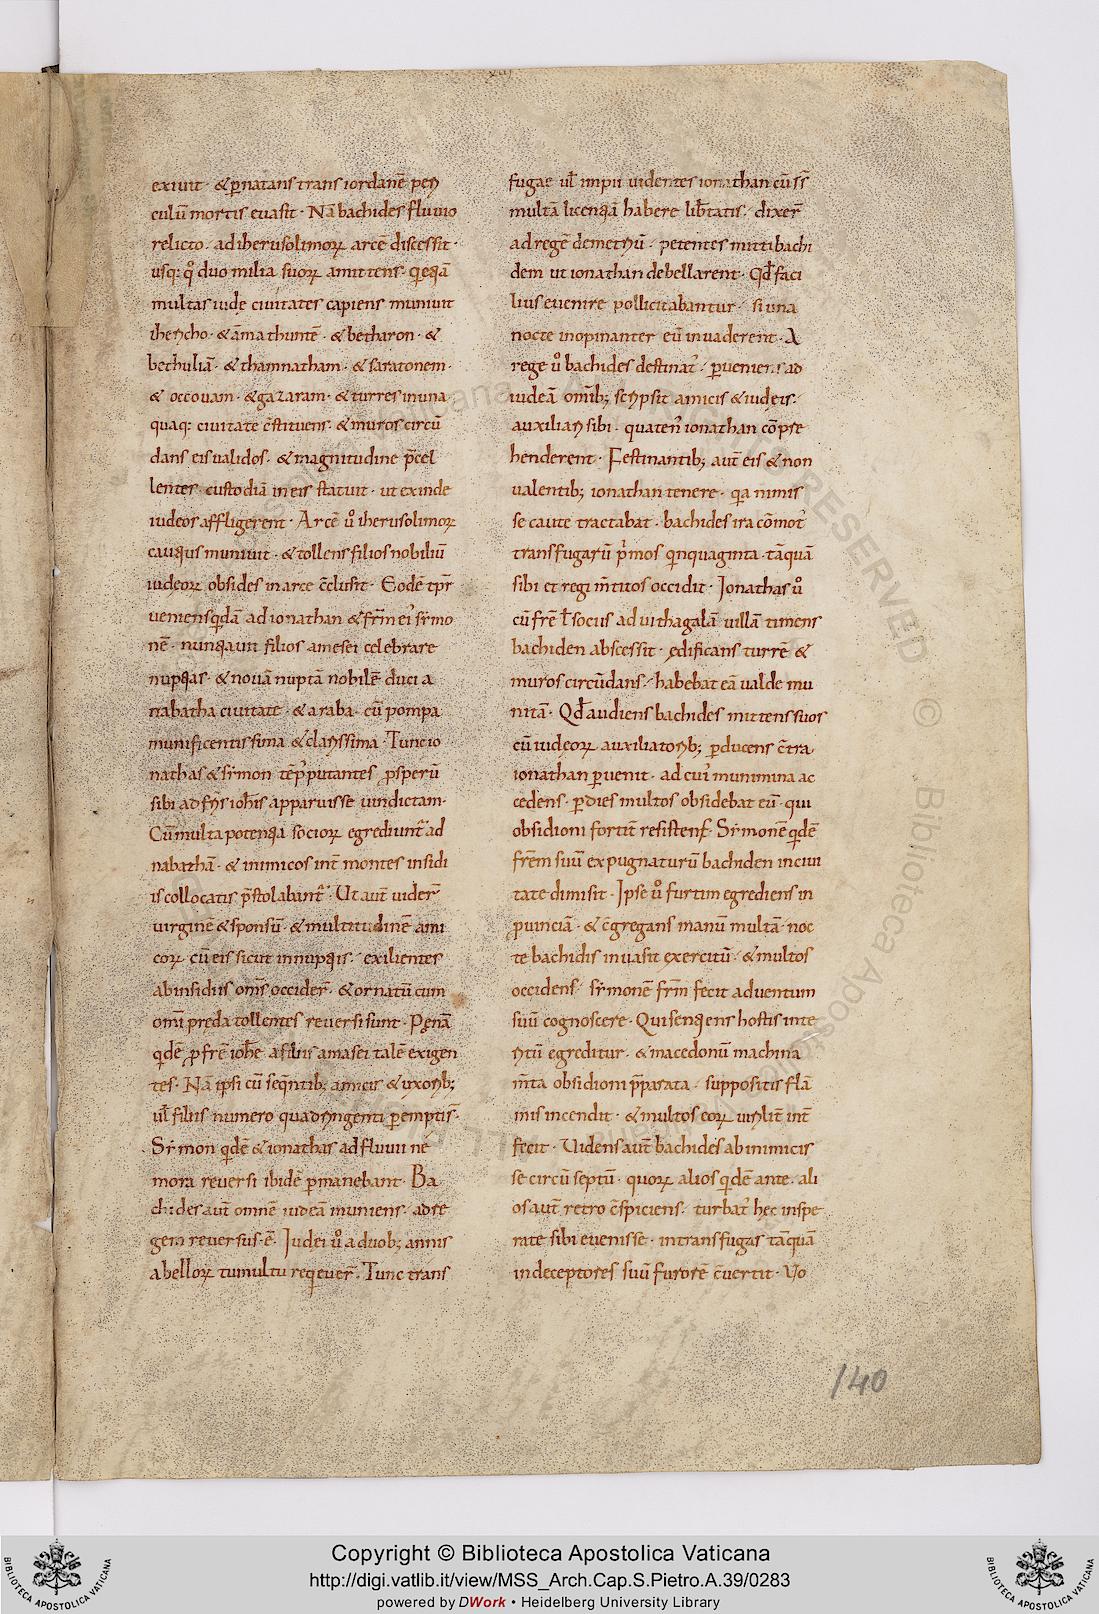 exiuit · & p̄natans trans iordanē peri
culū mortis euasit · Nā bachides fluuio
relicto · ad iherusolimorꝝ arcē discessit ·
usq: q̊ duo milia suorꝝ amittens ·
multas iude ciuitates capiens muniuit
ihericho · & amathuntē · & betharon · &
bethuliā · & thamnatham · & faratonem ·
& occouam · & gazaram · & turres in una
quaq: ciuitate c̄stituens · & muros circū
dans eis ualidos · & magnitudine p̄cel
lentes · custodiā in eis statuit · ut exinde
iudeos affligerent · Arcē ů iherusolimorꝝ
cautius muniuit · & tollens filios nobiliū
iudeorꝝ obsides in arce c̄clusit · Eodē tp̄r
ueniens qidā ad ionathan & fr̄m ei' sẏmo
nē · nunciauit filios amesei celebrare
nuptias · & nouā nuptā nobilē duci a
nabatha ciuitate · & araba · cū pompa
munificentissima & clarissima · Tunc io
nathas & sẏmon tēp' putantes ꝓsperū
sibi ad fr̄is ioh̄is apparuisse uindictam ·
Cū multa potentia sociorꝝ egrediunt̄ ad
nabathā · & inimicos int̄ montes insidi
is collocatis p̄stolabant̄ · Ut aut̄ uider̄
uirginē & sponsū · & multitudinē ami
corꝝ cū eis sicut in nuptiis · exilientes
ab insidiis om̄s occider̄ · & ornatū cum
om̄i preda tollentes reuersi sunt · Penā
qidē ꝓ fr̄e ioh̄e a filiis amasei talē exigen
tes · Nā ipsi cū seqn̄tib; amicis & uxorib;
ul̄ filiis numero quadringenti perempti s̄ ·
Sẏmon qidē & ionathas ad fluuii ne
mora reuersi ibidē p̄manebant · Ba
chides aut̄ omnē iudeā muniens · ad re
gem reuersus · ē · Iudei ů a duob; annis
a bellorꝝ tumultu reqieuer̄ · Tunc trans
fugae ul̄ impii uidentes ionathan cū s̄s̄
multā licentiā habere lib̄tatis · dixer̄
ad regē demetriū · petentes mitti bachi
dem ut ionathan debellarent · Qd̄ faci
lius euenire pollicitabantur · si una
nocte inopinanter eū inuaderent · A
rege ů bachides destinat̕ · p̄ueniens ad
iudeā omīb; scripsit amicis & iudeis ·
auxiliari sibi · quaten̕ ionathan cōpre
henderent · Festinantib; aut̄ eis & non
ualentib; ionathan tenere · qia nimis
se caute tractabat · bachides ira cōmot̕
transfugarū p'mos qinquaginta · tāquā
sibi et regi m̄titos occidit · Ionathas ů
cū fr̄e & sociis ad uithagalā uillā timens
bachiden abscessit · ędificans turrē &
muros circūdans · habebat eā ualde mu
nitā · Qd̄ audiens bachides mittens suos
cū iudeorꝝ auxiliatorib; p̄ducens c̄tra
ionathan p̄uenit · ad cui' munimina ac
cedens · p̄ dies multos obsidebat eū · qui
obsidioni fortit̄ resistens · Sẏmonē qidē
fr̄em suū expugnaturū bachiden in ciui
tate dimisit · Ipse ů furtim egrediens in
ꝓuinciā · & c̄gregans manū multā · noc
te bachidis inuasit exercitū · & multos
occidens · sẏmonē fr̄m fecit aduentum
suū cognoscere · Qui sentiens hostis inte
ritū egreditur · & macedonū machina
m̄ta obsidioni p̄parata · suppositis flā
mis incendit · & multos eorꝝ uirilit̄ int̄
fecit · Uidens aut̄ bachides ab inimicis
se circū septū · quorꝝ alios qidē ante · ali
os aut̄ retro c̄spiciens · turbat̕ hec inspe
rate sibi euenisse · in transfugas tāquā
in deceptores suū furorē c̄uertit · Uo
140
Copyright © Biblioteca Apostolica Vaticana
http://digi.vatlib.it/view/MSS_Arch.Cap.S.Pietro.A.39/0283
powered by DWork • Heidelberg University Library